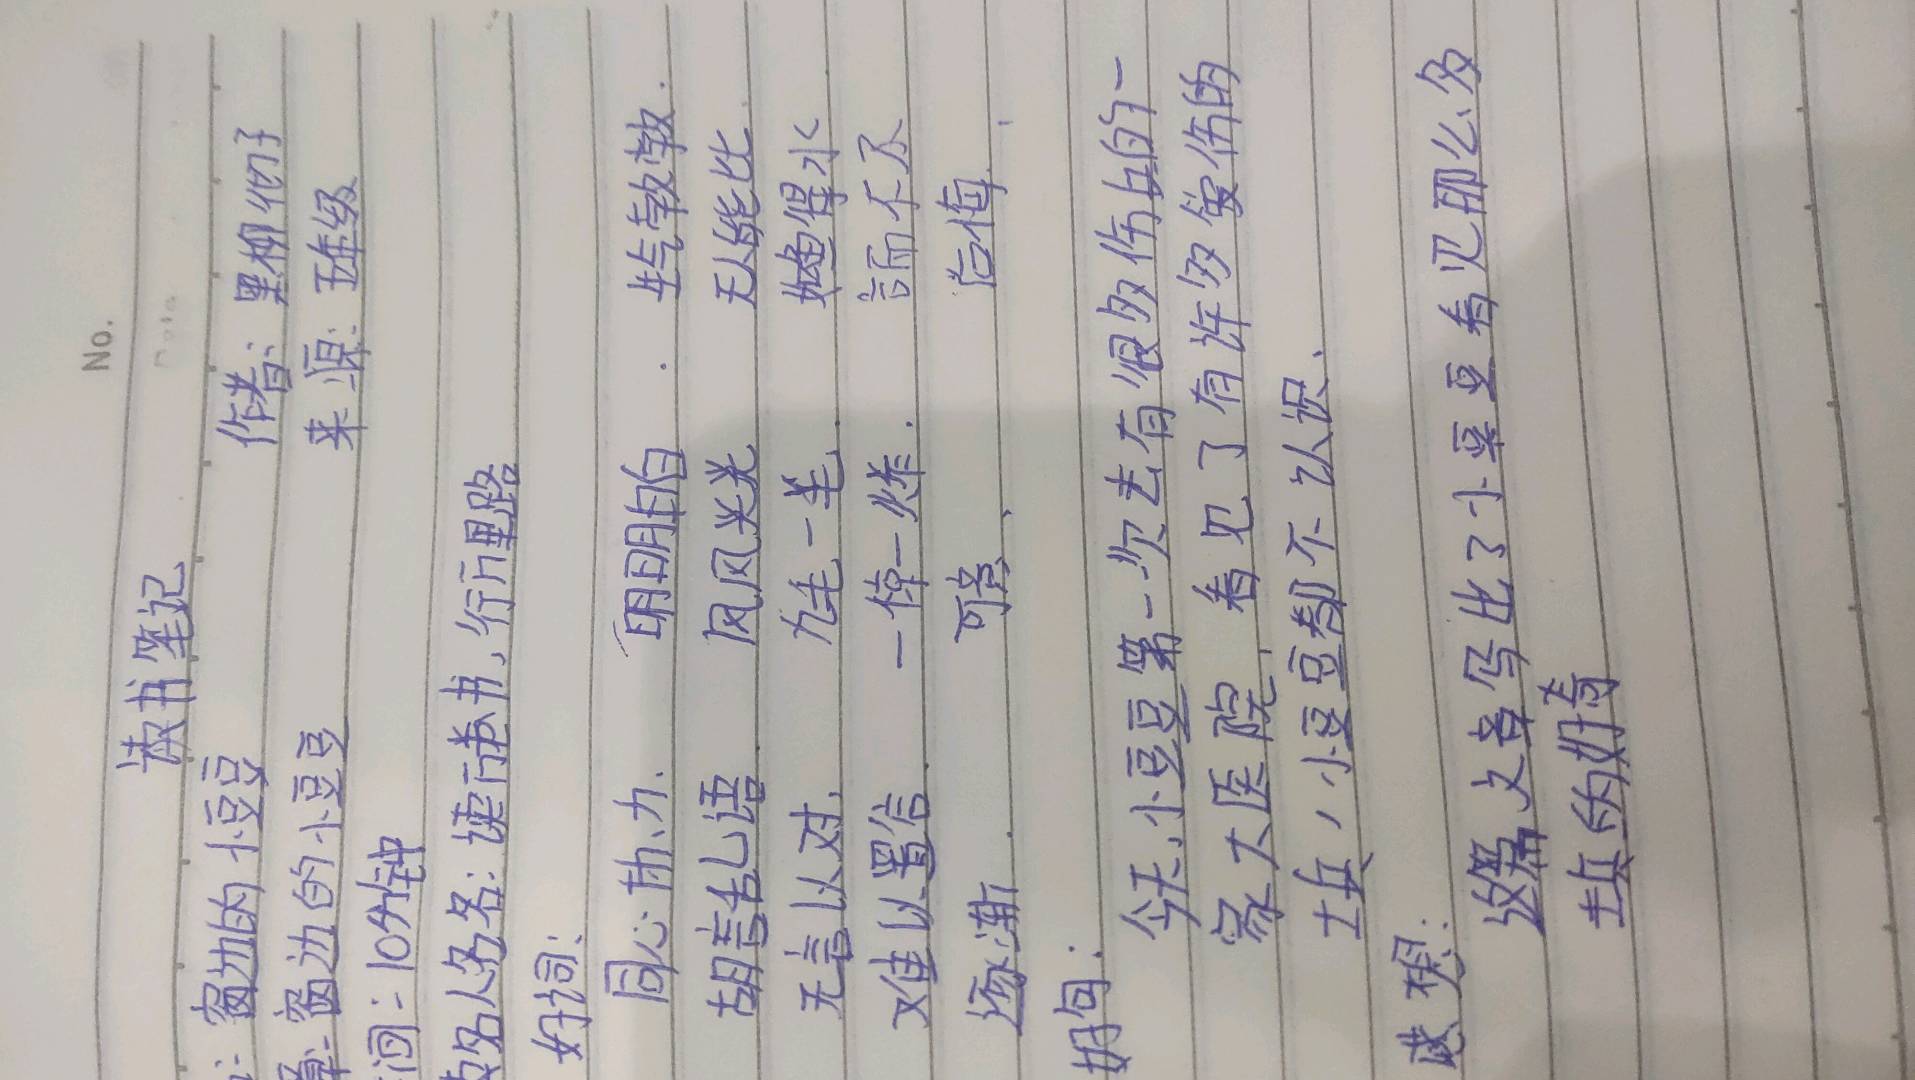 No.
Date
读书笔记
:窗边的小豆豆 作者:黑柳彻子
章:窗边的小豆豆 来源:五年级
间:10分钟
名人名名:读万卷书,行万里路
好词:
同心协力. 明明白白. 生气勃勃.
胡言乱语. 风风光光. 无人能比.
无言以对. 九牛一毛. 如鱼得水
难以置信. 一惊一炸. 言而不尽
逐渐. 可惊. 后悔.
好句:
今天,小豆豆第一次去有很多伤兵的一
家大医院,看见了有许多受伤的
士兵,小豆豆都不认识.
感想:
这篇文章写出了小豆豆看见那么多
士兵的好奇